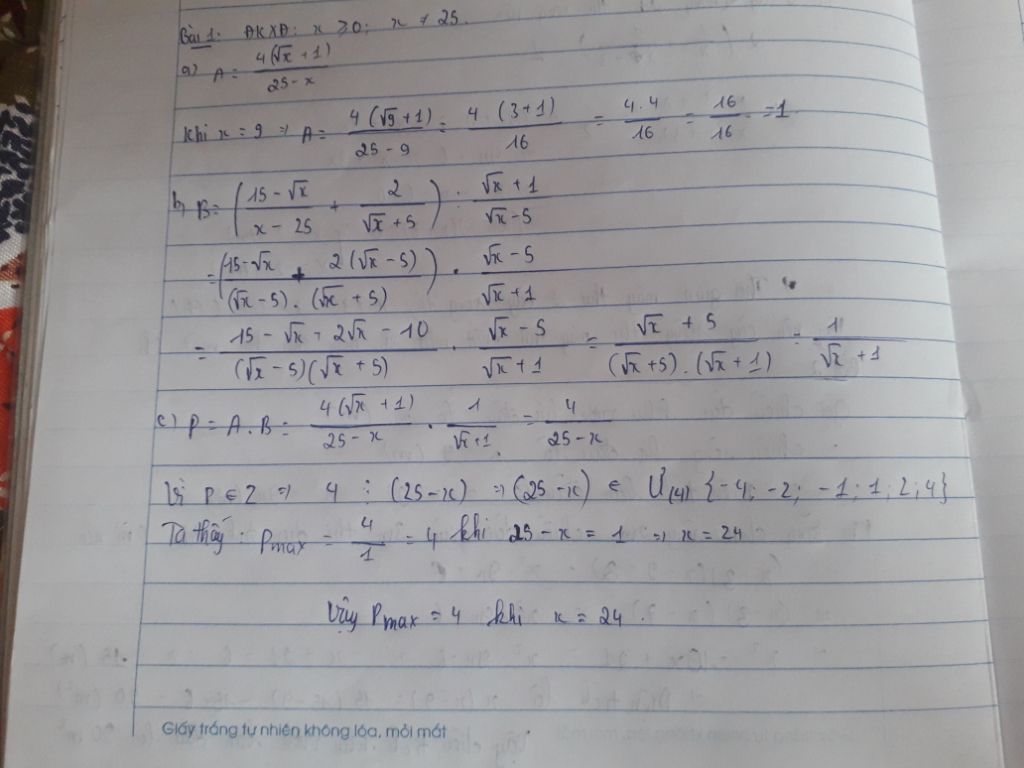 Bài 1: ĐKXĐ: x ≥ 0; x ≠ 25.
a) A = 4(√x + 1) / 25 - x
Khi x = 9 => A = 4(√9 + 1) / 25 - 9 = 4 (3 + 1) / 16 = 4.4 / 16 = 16 / 16 = 1.
b) B = (15 - √x / x - 25 + 2 / √x + 5) : √x + 1 / √x - 5
= (15 - √x + 2(√x - 5) / (√x - 5).(√x + 5)) . √x - 5 / √x + 1
= 15 - √x + 2√x - 10 / (√x - 5)(√x + 5) . √x - 5 / √x + 1 = √x + 5 / (√x + 5).(√x + 1) = 1 / √x + 1
c) P = A.B = 4(√x + 1) / 25 - x . 1 / √x + 1 = 4 / 25 - x
Vì P ∈ Z => 4 ⋮ (25 - x) => (25 - x) ∈ Ư(4) {-4; -2; -1; 1; 2; 4}
Ta thấy: Pmax = 4 / 1 = 4 khi 25 - x = 1 => x = 24
Vậy Pmax = 4 khi x = 24.
Giấy trắng tự nhiên không lóa, mỏi mắt